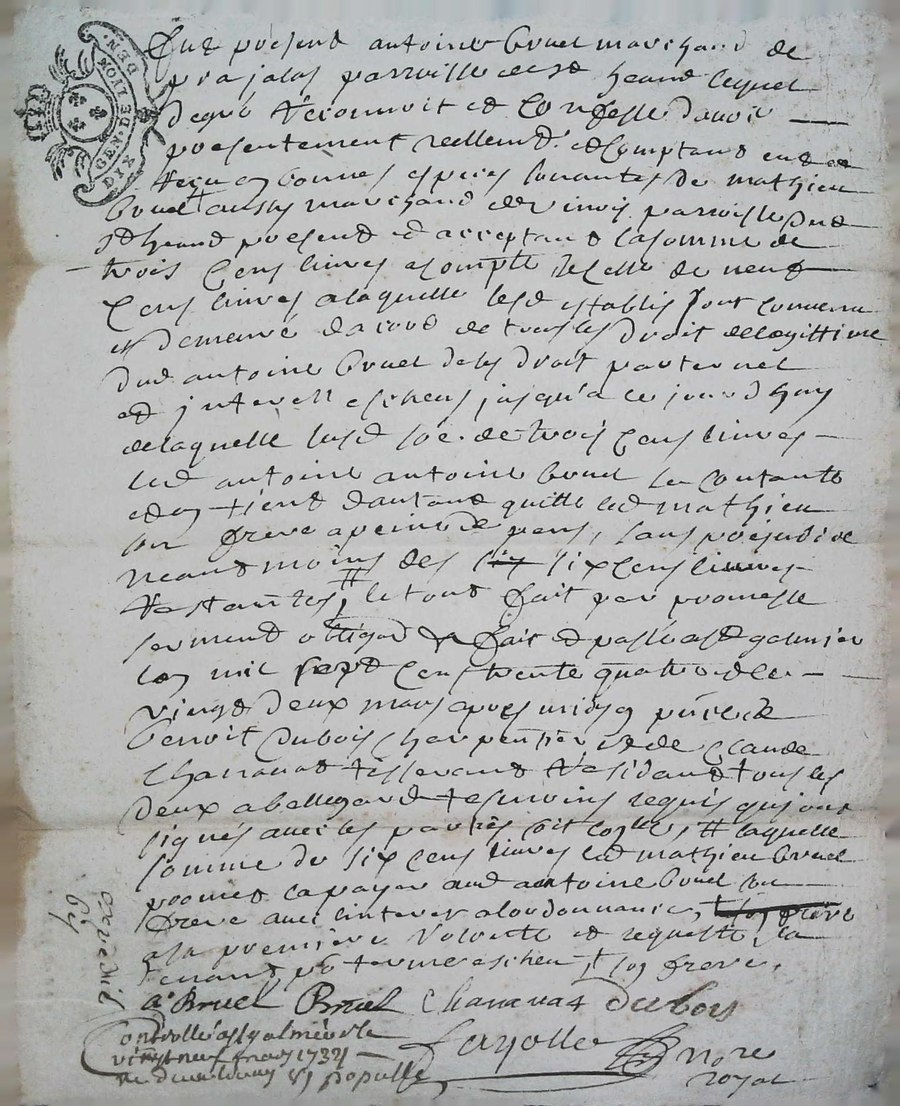 GEN. DE LION
DIX DEN.
fut présent antoine bruel marchand de
prajalas parroisse de st heand lequel
de gré Reconnoit et confesse d'avoir
presentement reellemt. et comptant
Reçu en bonnes especes sonantes de mathieu
bruel aussy marchand parroisse dud
st heand present et acceptant la somme de
trois cens livres a compte de celle de neuf
cens livres a laquelle lesd establis sont convenu
et demeuré dacord de tous les droit de legittime
dud antoine bruel de ses droit paternel
et jnterest escheus jusqu'a ce jourd huy
de laquelle susd soe. de trois cens livres
led antoine antoine bruel se contante
et en tient dautant quitte led mathieu
son frere a peine de pens, sans prejudice
neantmoins des six cens livres
Restantes # le tout fait par promesse
serment obligaon fait et passé a st galmier
lan mil sept cens trente quatre le
vingt deux mars apres midy en pñce de
benoit dubois charpentier et de claude
Chanavat tisserant Residant tous les
deux a bellegard tesmoins requis qui ont
signés avec les parties # laquelle
somme de six cens livres led mathieu bruel
promet la payer aud antoine bruel son
frere avec linterest a lordonnance,
a la premiere volonté et requeste
tenant pr terme escheu, # son frere.
a Bruel Bruel Chanavat Dubois
Controllé a st galmier le
vingt neuf mars 1734
Fayolle nore
royal